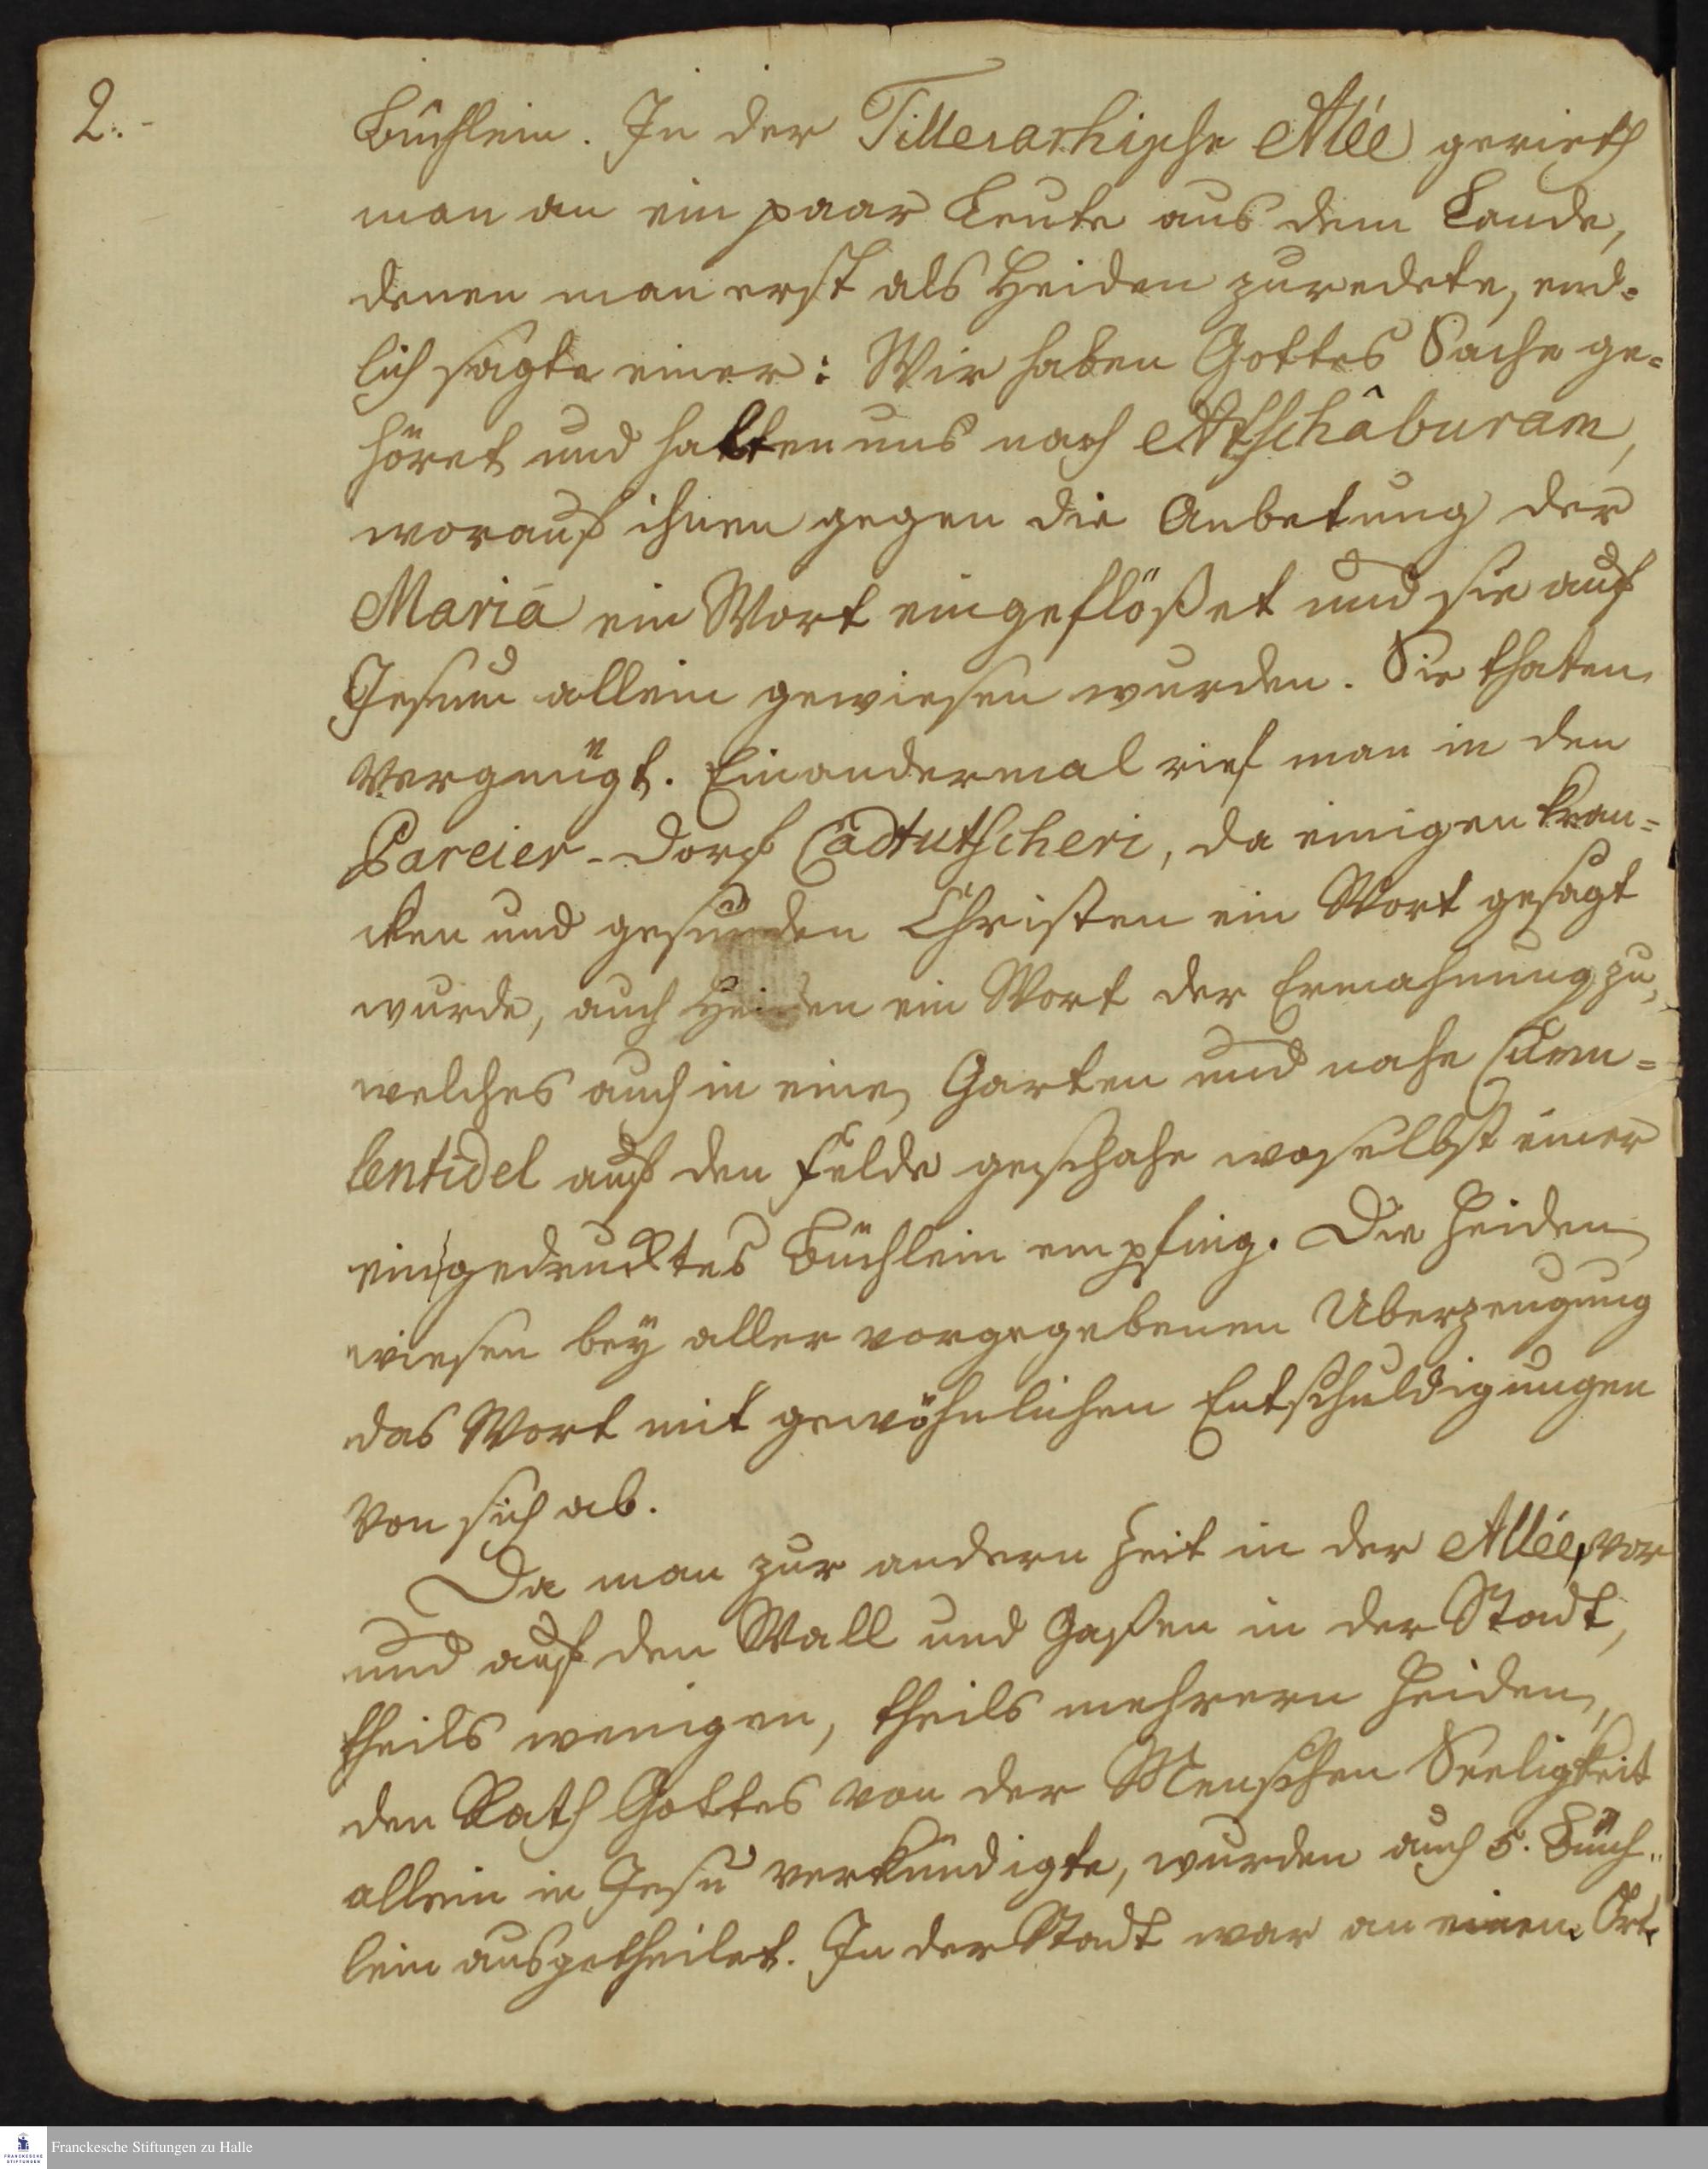 2.
Büchlein. In der Tillerarhische Alée gerieth
man an ein paar Leute aus dem Lande,
denen man erst als Heiden zuredete, end=
lich sagte einer: Wir haben Gottes Sache ge=
höret und halten uns nach Atschâburam,
worauf ihnen gegen die Anbetung der
Mariä ein Wort eingeflößet und sie auf
Jesum allein gewiesen wurden. Sie thaten
vergnügt. Ein andermal rief man in den
Pareier-Dorf Cadtutscheri, da einigen kran=
cken und gesunden Christen ein Wort gesagt
wurde, auch Heiden ein Wort der Ermahnung zu,
welches auch in einen Garten und nahe
lentidel auf den Felde geschahe woselbst einer
ein gedrucktes Büchlein empfing. Die Heiden
wiesen bey aller vorgegebenen Uberzeugung
das Wort mit gewöhnlichen Entschuldigungen
von sich ab.
Da man zur andern Zeit in der Allée, vor
und auf den Wall und Gaßen in der Stadt,
theils wenigen, theils mehrern Heiden,
den Rath Gottes von der Menschen Seeligkeit
allein in Jesu verkündigte, wurden auch 5. Büch=
lein ausgetheilet. In der Stadt war an einen Ort
FRANCKESCHE STIFTUNGEN
Franckesche Stiftungen zu Halle